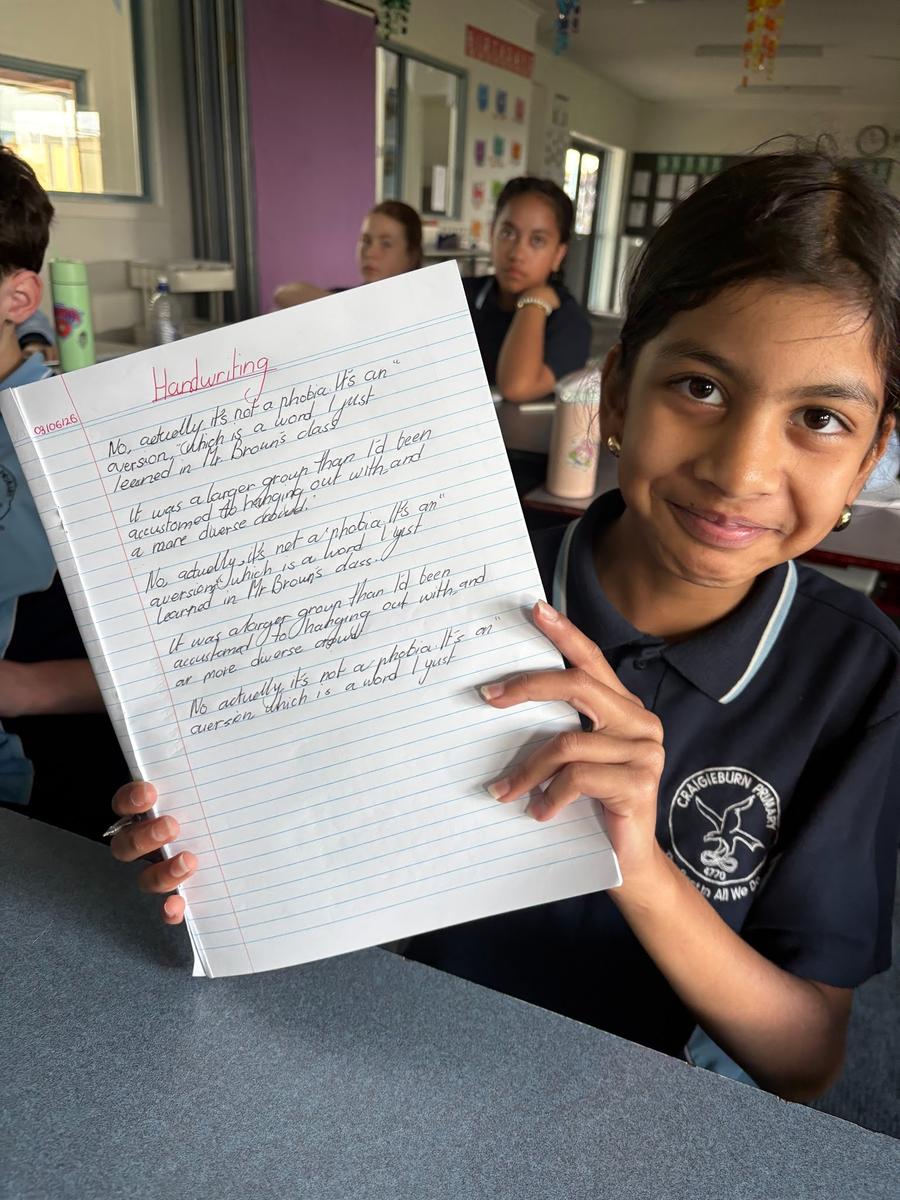 Handwriting
03/06/26
No, actually it's not a phobia. It's an"
aversion, "which is a word I just
learned in Mr Brown's class
It was a larger group than I'd been
accustomed to hanging out with, and
a more diverse crowd.
No, actually, it's not a phobia. It's an"
aversion" which is a word I just
learned in Mr Brown's class.
It was a larger group than I'd been
accustomed to hanging out with, and
a more diverse crowd
No actually, it's not a phobia. It's an"
aversion which is a word I just
CRAIGIEBURN PRIMARY
4770
In All We Do